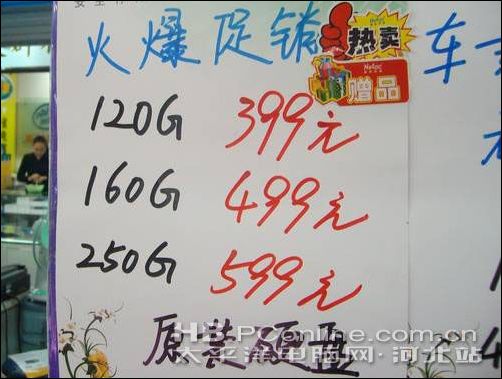 火爆促销 热卖 车
Netac
赠品
120G 399元
160G 499元
250G 599元
原装硬盘
PConline.com.cn
太平洋电脑网·河北站